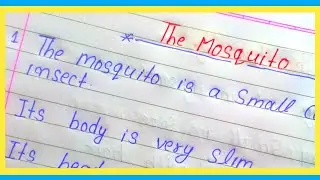 * The Mosquito
1. The mosquito is a small
insect
Its body is very slim
Its